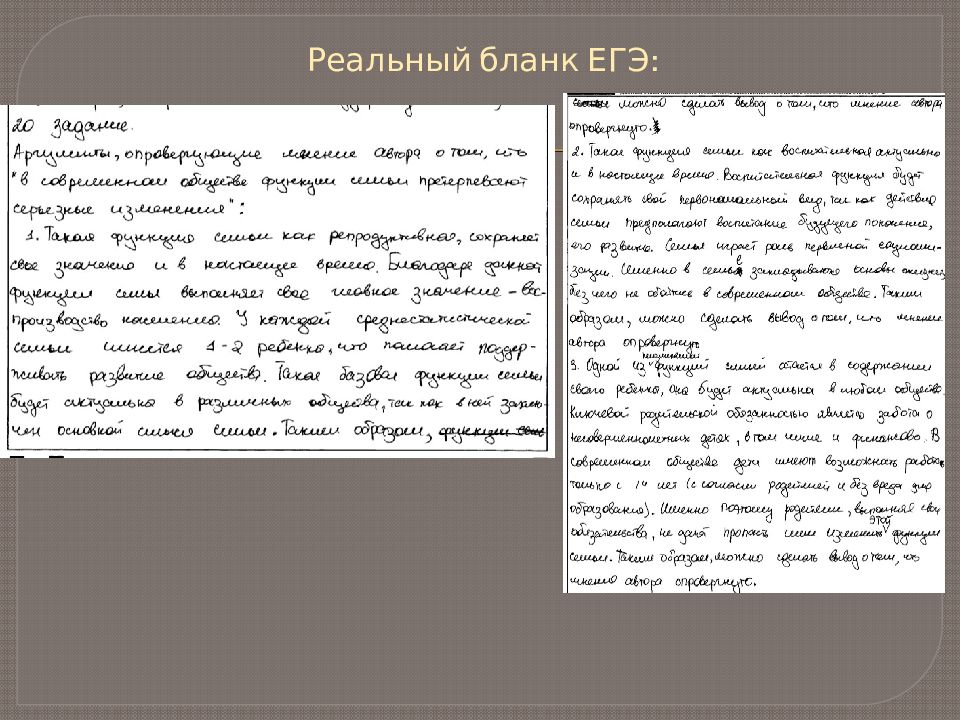 Реальный бланк ЕГЭ:
20 задание.
Аргументы, опровергующие мнение автора о том, что
"в современном обществе функции семьи претерпевают
серьезные изменения":
1. Такая функция семьи как репродуктивная, сохраняет
свое значение и в настоящее время. Благодаря данной
функции семья выполняет свое главное значение – вос-
производство населения. У каждой среднестатистической
семьи имеется 1-2 ребенка, что помогает поддер-
живать развитие общества. Такая базовая функция семьи
будет актуальна в различных общества, так как в ней заклю-
чен основной смысл семьи. Таким образом, функции
можно сделать вывод о том, что мнение автора
опровергнуто.
2. Такая функция семьи как воспитательная актуальна
и в настоящее время. Воспитательная функция будет
сохранять свой первоначальный вид, так как действия
семьи предполагают воспитание будущего поколения,
его развитие. Семья играет роль первичной социали-
зации. Именно в семье закладываются основы
без чего не обойтись в современном обществе. Таким
образом, можно сделать вывод о том, что мнение
автора опровергнуто
3. Одной из функций семьи остаётся в содержании
своего ребенка, она будет актуальна в любом обществе.
Ключевой родительской обязанностью является забота о
несовершеннолетних детях, в том числе и финансово. В
современном обществе дети имеют возможность работать
только с 14 лет (с согласия родителей и без вреда для
образования). Именно поэтому родители, выполняя свои
обязательства, не дают пропасть или изменить этой функции
семьи. Таким образом, можно сделать вывод о том, что
мнение автора опровергнуто.